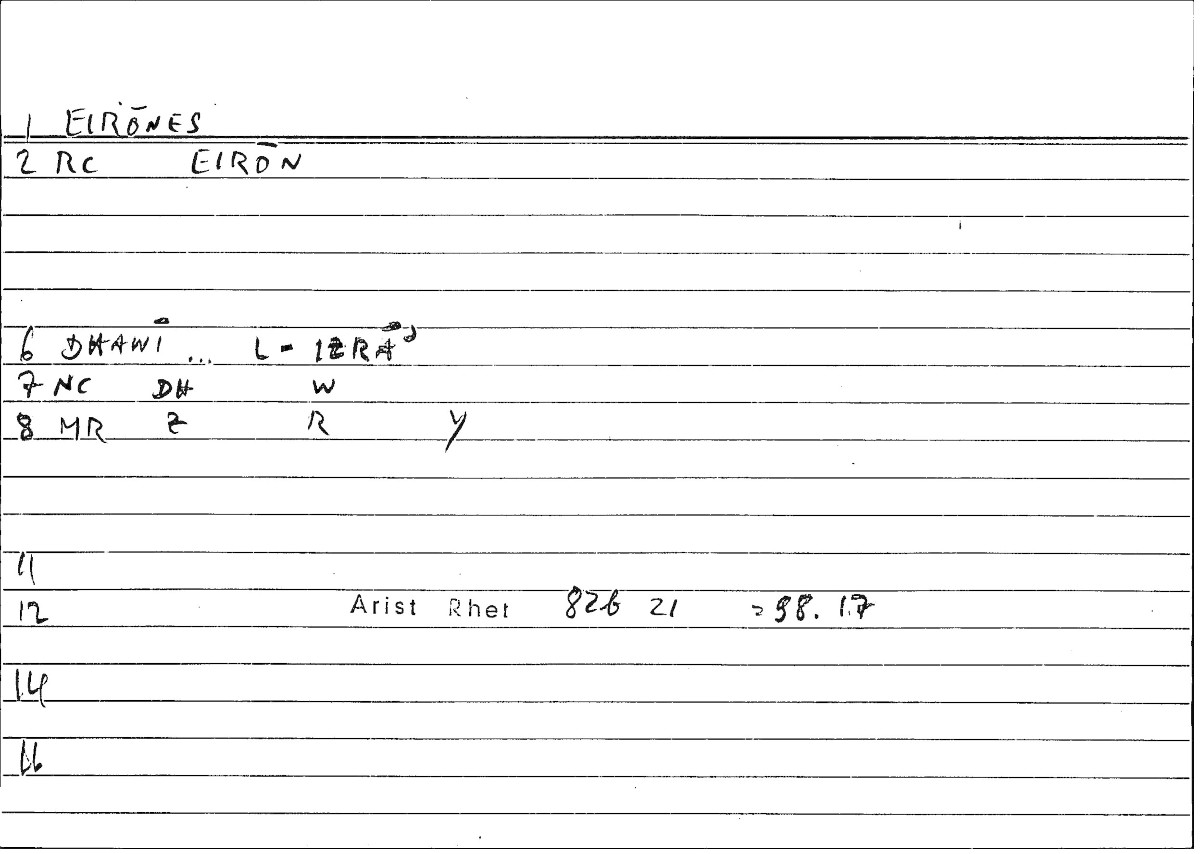 1 EIRŌNES
2 RC EIRŌN
6 DHAWĪ ... L - IZRĀʾ
7 NC DH W
8 MR Z R Y
11
12 Arist Rhet 82b 21 = 98.17
14
16